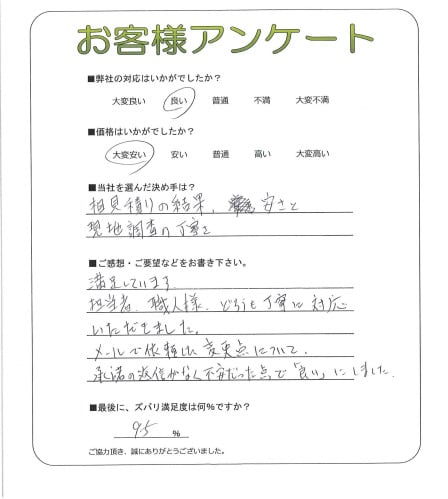 お客様アンケート
■弊社の対応はいかがでしたか？
大変良い 良い 普通 不満 大変不満
■価格はいかがでしたか？
大変安い 安い 普通 高い 大変高い
■当社を選んだ決め手は？
相見積りの結果、安さと
現地調査の丁寧さ
■ご感想・ご要望などをお書き下さい。
満足しています
担当者、職人様、どちらも丁寧に対応
いただきました。
メールで依頼した変更点について、
承諾の返信がなく不安だった点で「良い」にしました。
■最後に、ズバリ満足度は何％ですか？
95 ％
ご協力頂き、誠にありがとうございました。